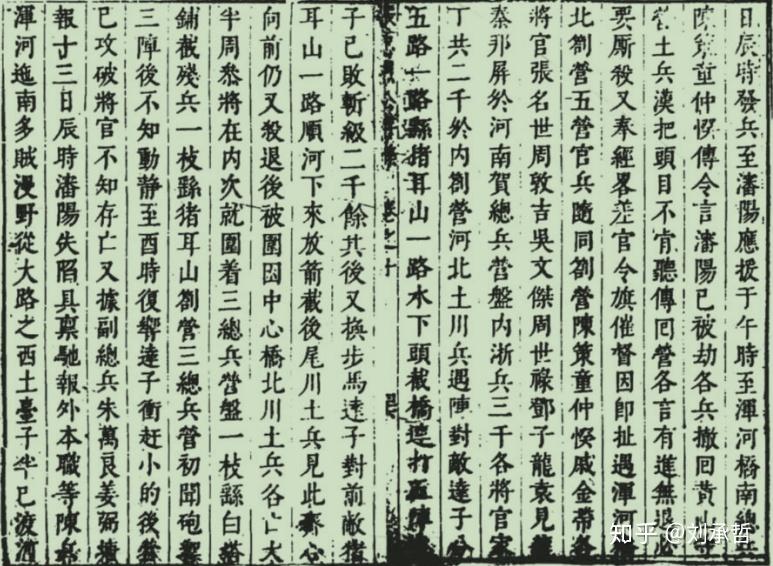 日辰時發兵至瀋陽應援于午時至渾河橋南總兵
陳策童仲揆傳令言瀋陽已被劫各兵撤回黃山
土兵漢把頭目不肯聽傳回營各言有進無退
要厮殺又奉經畧差官令旗催督因即扯過渾河
北劄營五營官兵隨同劄營陳策童仲揆戚金帶各
將官張名世周敦吉吳文傑周世祿鄧子龍袁見龍
秦邦屏於河南賀總兵營盤內浙兵三千各將官家
丁共二千於內劄營河北土川兵遇陣對敵達子分
五路一路繇猪耳山一路水下頭截橋連打五陣
子已敗斬級二千餘其後又換步馬達子對前敵
耳山一路順河下來放箭截後尾川土兵見此齊心
向前仍又殺退後被圍困中心橋北川土兵各亡大
半周叅將在內次就圍着三總兵營盤一枝繇白塔
鋪截殘兵一枝繇猪耳山劄營三總兵營初聞砲響
三陣後不知動靜至酉時復響達子衝赶小的後無
已攻破將官不知存亡又據副總兵朱萬良姜弼
報十三日辰時瀋陽失陷具禀馳報外本職等陳兵
渾河迤南多賊漫野從大路之西土臺子半已渡河
知乎 @刘承哲